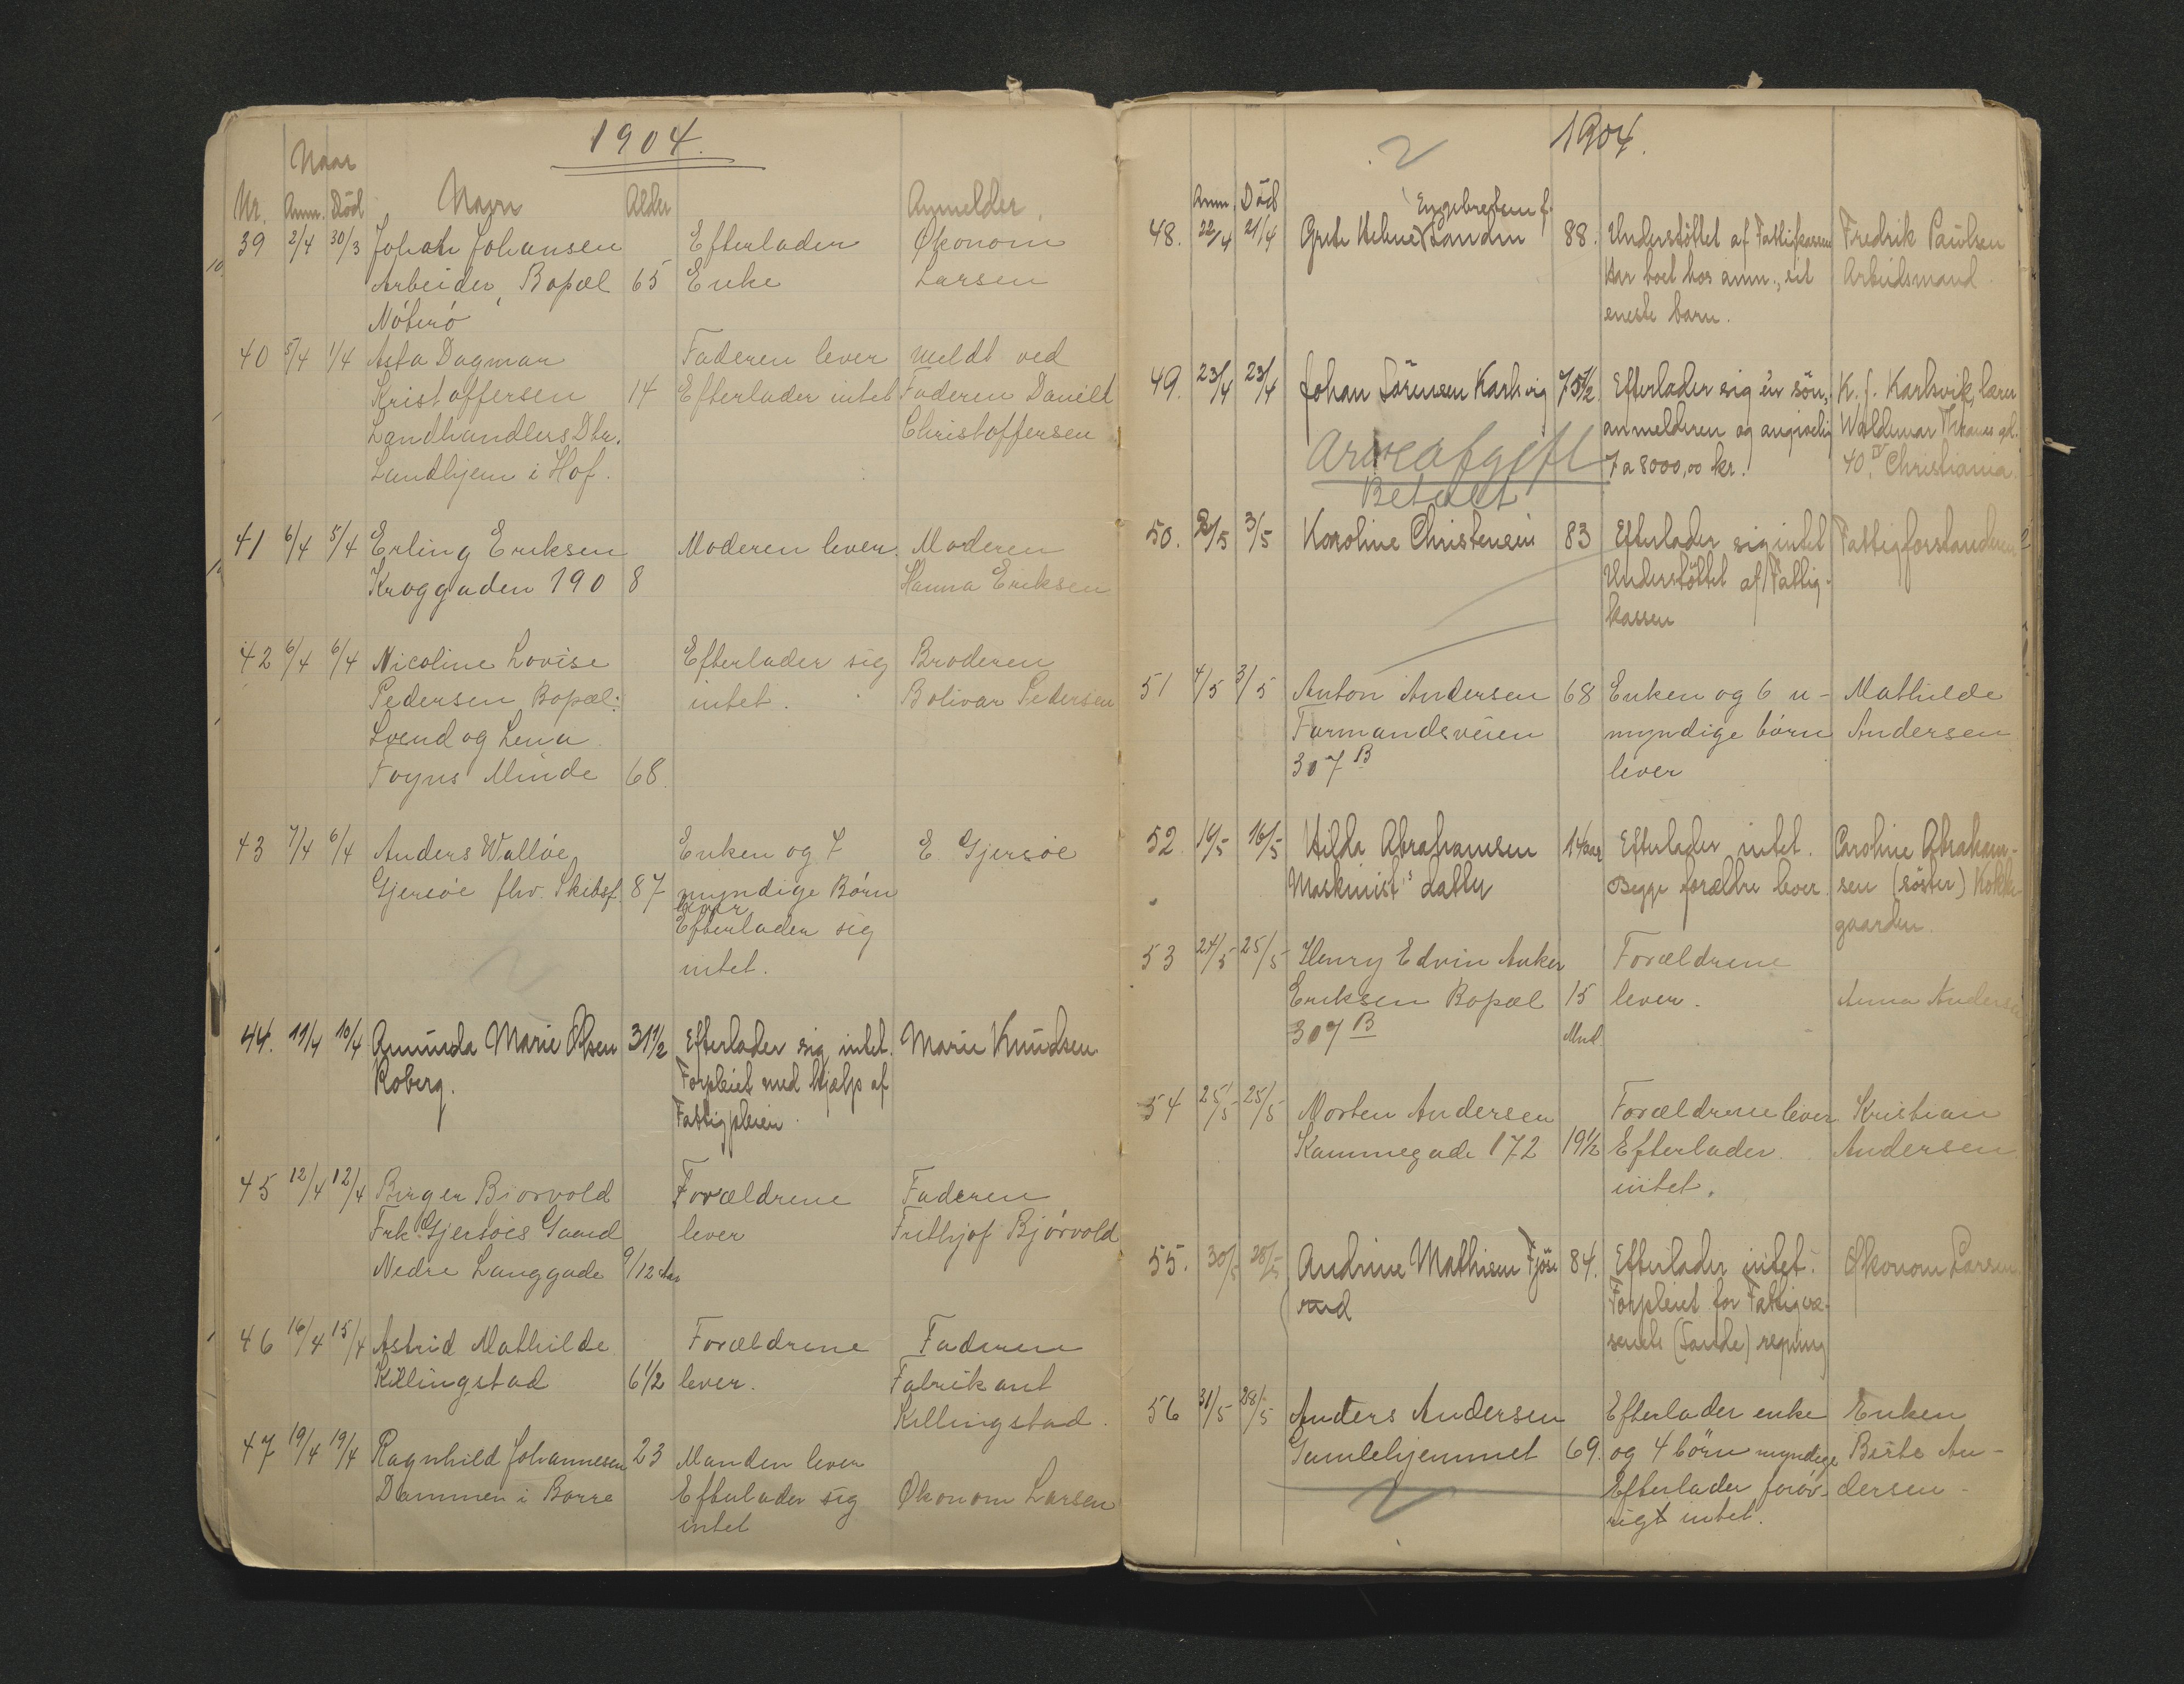 1904.
Naar
Nr. Anm. Död Navn Alder Anmelder.
39 2/4 30/3 Johan Johansen Efterlader Økonom
Arbeider, Bopæl 65 Enke Larsen
Nöterö
40 5/4 1/4 Asta Dagmar Faderen lever meldt ved
Kristoffersen 14 Efterlader intet Faderen Daniel
Landhandlers Dtr. Christoffersen
Landhjem i Hof.
41 6/4 5/4 Erling Eriksen Moderen lever. Moderen
Kroggaden 190 8 Hanna Eriksen
42 6/4 6/4 Nicoline Lovise Efterlader sig Broderen
Pedersen Bopæl: intet. Bolivar Pedersen
Svend og Lena
Foyns Minde 68.
43 7/4 6/4 Anders Wallöe Enken og 7 E. Gjersöe
Gjersöe fhv. Skibsf. 87 myndige Börn
lever
Efterlader sig
intet.
44. 11/4 10/4 Amunda Marie Olsen 31 1/2 Efterlader sig intet. Marie Knudsen
Roberg. Forpleiet med hjælp af
Fattigpleien.
45 12/4 12/4 Birger Biorvold Forældrene Faderen
Frk Gjersöes Gaard lever Frithjof Bjørvold
Nedre Langgade 9/12 Aar
46 16/4 15/4 Astrid Mathilde Forældrene Faderen
Killingstad 6 1/2 lever. Fabrikant
Killingstad.
47 19/4 19/4 Ragnhild Johannesen 23 Manden lever
Dammen i Borre Efterlader sig Økonom Larsen
intet
2 1904.
Anm. Död
Engebretsen f.
48. 22/4 21/4 Grete Helene Sanden 88. Understöttet af Fattigkassen Fredrik Paulsen
Har boet hos anm., sit Arbeidsmand.
eneste barn.
49. 23/4 23/4 Johan Sörensen Karlsvig 75 1/2. Efterlader sig én sön, K. J. Karlsvik, lærer
anmelderen og angivelig Waldemar Thranes gd.
Arveafgift 7 a 8000,00 kr. 40 IV Christiania.
Betalt
50. 3/5 3/5 Karoline Christensen 83 Efterlader sig intet Fattigforstanderen
Understöttet af Fattig-
kassen
51 4/5 3/5 Anton Andersen 68 Enken og 6 u- Mathilde
Farmandsveien myndige börn Andersen
307 B lever
52. 16/5 16/5 Hilda Abrahamsen 14 aar Efterlader intet. Caroline Abraham-
Maskinist's datter Begge forældre lever. sen (söster) Kokke-
gaarden.
53 24/5 25/5 Henry Edvin Anker Forældrene
Eriksen Bopæl 15 lever. Anna Andersen
307 B Mnd.
54 25/5 25/5 Morten Andersen Forældrene lever Kristian
Kammegade 172 19 1/2 Efterlader Andersen
intet.
55. 30/5 28/5 Andrine Mathisen Fjöse 84. Efterlader intet. Økonom Larsen.
rud Forpleiet for Fattigvæ-
senets (Sande) regning
56 31/5 28/5 Anders Andersen Efterlader enke Enken
Gamlehjemmet 69. og 4 börn myndige Berte An-
Efterlader foröv- dersen -
rigt intet.